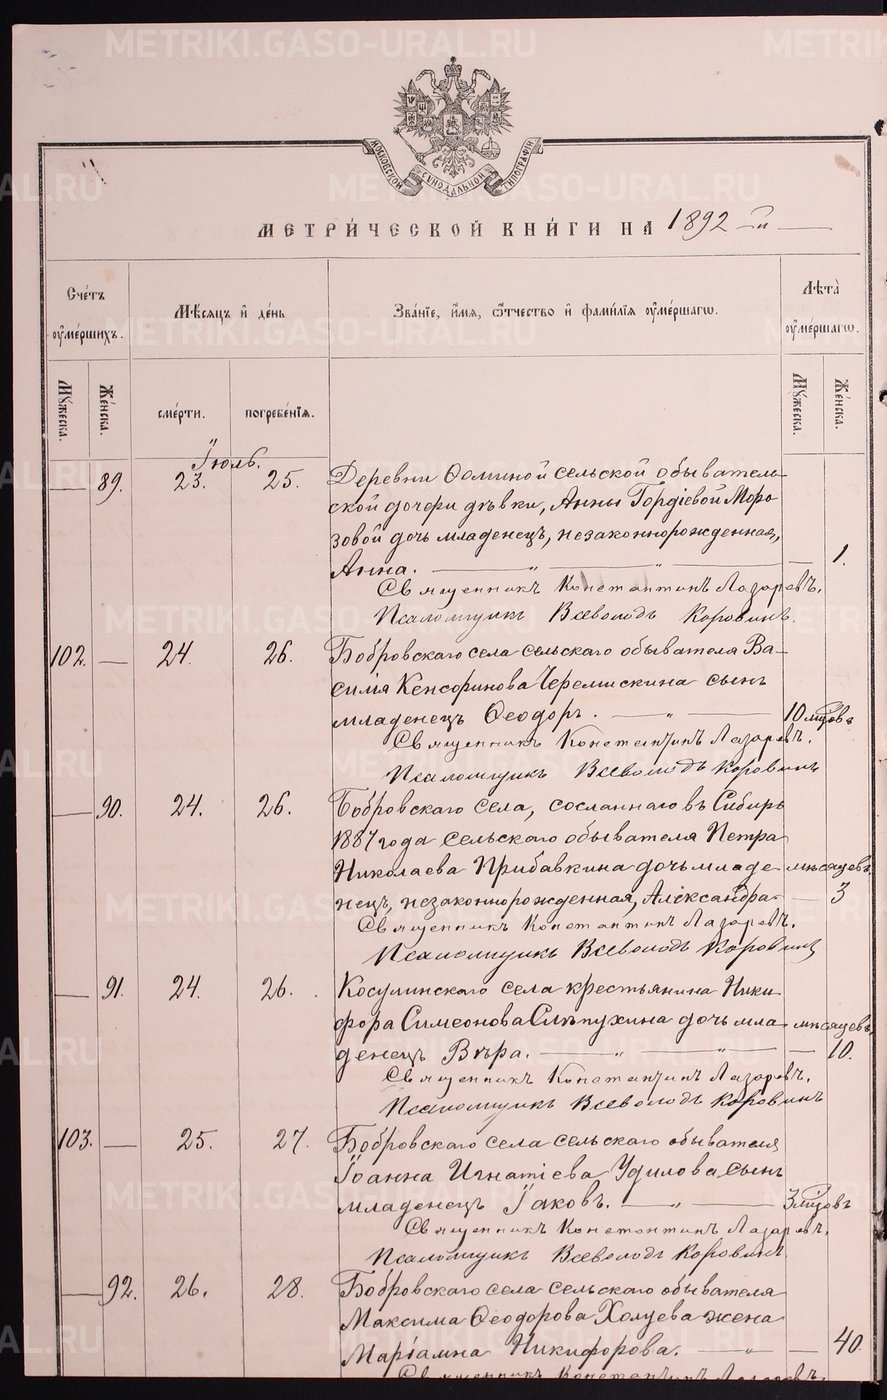 METRIKI.GASO-URAL.RU
МОСКОВСКОЙ СѴНОДАЛЬНОЙ ТИПОГРАФІИ
МЕТРИ́ЧЕСКОЙ КНИ́ГИ НА 1892 й
Сче́тъ ᲂу҆ме́ршихъ.
Мѣ́сяцъ и҆ де́нь
Зва́нїе, и҆́мя, ѻ҆́тчество и҆ фами́лїя ᲂу҆ме́ршагѡ.
Лѣ́та ᲂу҆ме́ршагѡ.
Мꙋ́жеска.
Же́нска.
сме́рти.
погребе́нїѧ.
Мꙋ́жеска.
Же́нска.
Іюль.
89. 23. 25. Деревни Ѳоминой сельской обыватель-
ской дочери дѣвки, Анны Гордіевой Моро-
зовой дочь младенецъ, незаконнорожденная,
Анна. — „ — „ — 1.
Священникъ Константинъ Лазаревъ.
Псаломщикъ Всеволодъ Коровинъ.
102. — 24. 26. Бобровскаго села сельскаго обывателя Ва-
силія Кенсоринова Черемискина сынъ
младенецъ Ѳеодоръ. — „ — 10 мцовъ
Священникъ Константинъ Лазаревъ.
Псаломщикъ Всеволодъ Коровинъ
— 90. 24. 26. Бобровскаго села, сосланнаго въ Сибирь
1887 года сельскаго обывателя Петра
Николаева Прибавкина дочь младе- мѣсяцевъ
нецъ, незаконнорожденная, Александра — 3
Священникъ Константинъ Лазаревъ.
Псаломщикъ Всеволодъ Коровинъ
— 91. 24. 26. Косулинскаго села крестьянина Ники-
фора Симеонова Слѣпухина дочь мла- мѣсяцевъ
денецъ Вѣра. — „ — „ — 10.
Священникъ Константинъ Лазаревъ.
Псаломщикъ Всеволодъ Коровинъ
103. — 25. 27. Бобровскаго села сельскаго обывателя
Іоанна Игнатіева Удилова сынъ
младенецъ Іаковъ. — „ — 3 мцовъ
Священникъ Константинъ Лазаревъ.
Псаломщикъ Всеволодъ Коровинъ
— 92. 26. 28. Бобровскаго села сельскаго обывателя
Максима Ѳеодорова Холуева жена
Маріамна Никифорова. — „ — 40.
Священникъ Константинъ Лазаревъ